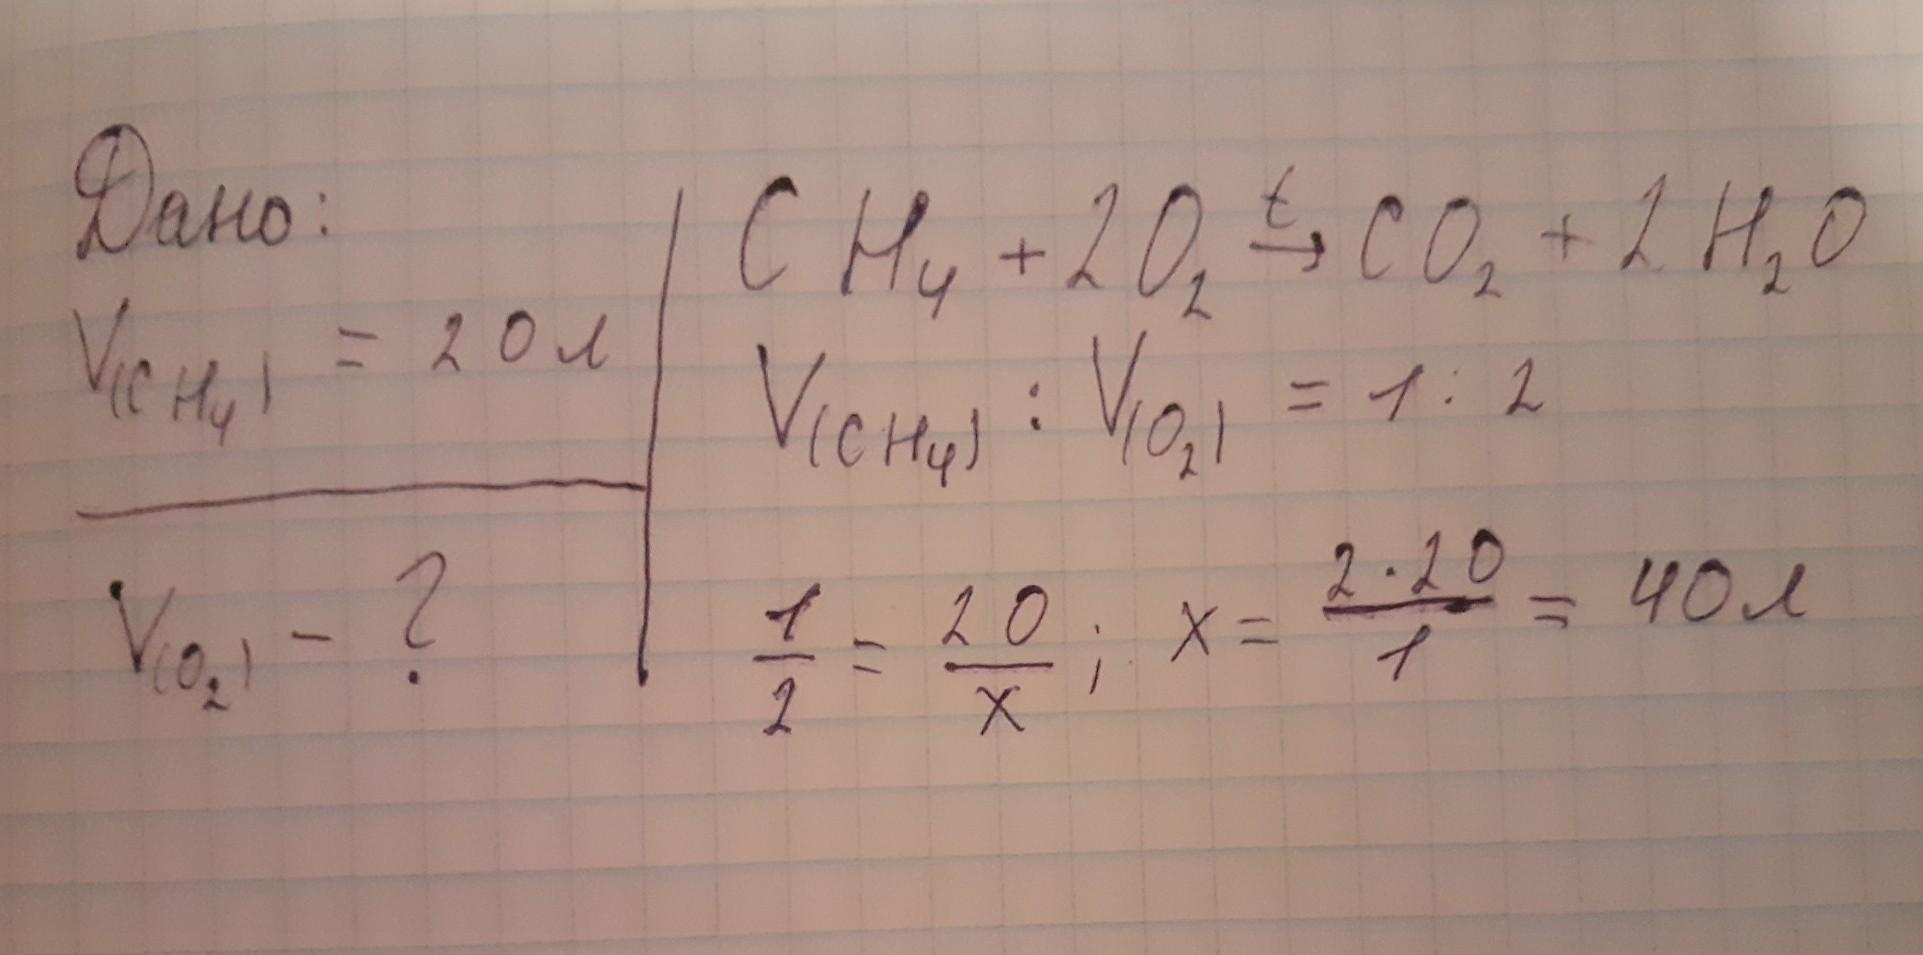 Дано:
V(CH₄) = 20 л
V(O₂) - ?
CH₄ + 2O₂ →ᵗ CO₂ + 2H₂O
V(CH₄) : V(O₂) = 1 : 2
1/2 = 20/x ; x = 2·20/1 = 40 л